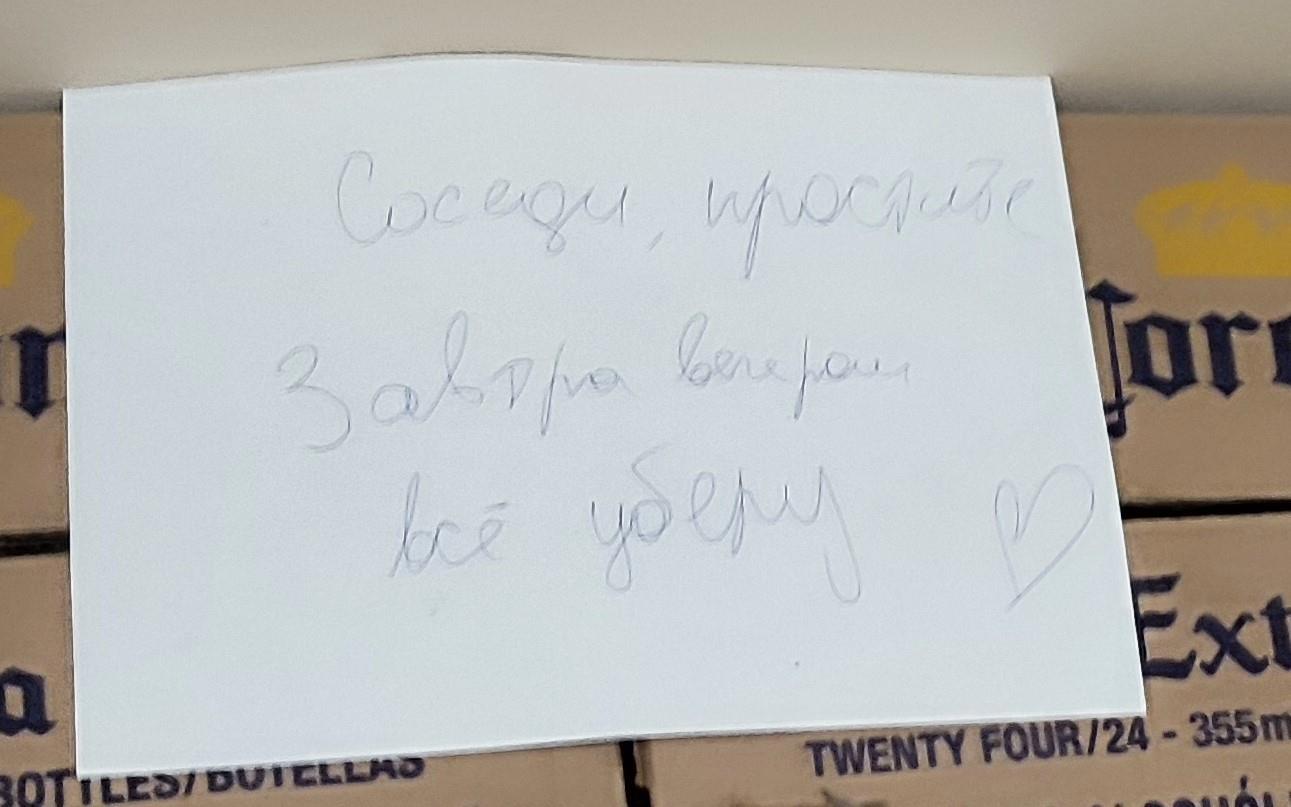 Соседи, простите
Завтра вечером
всё уберу
Core
Ext
a
BOTTLES/BOTELLAS
TWENTY FOUR/24 - 355m